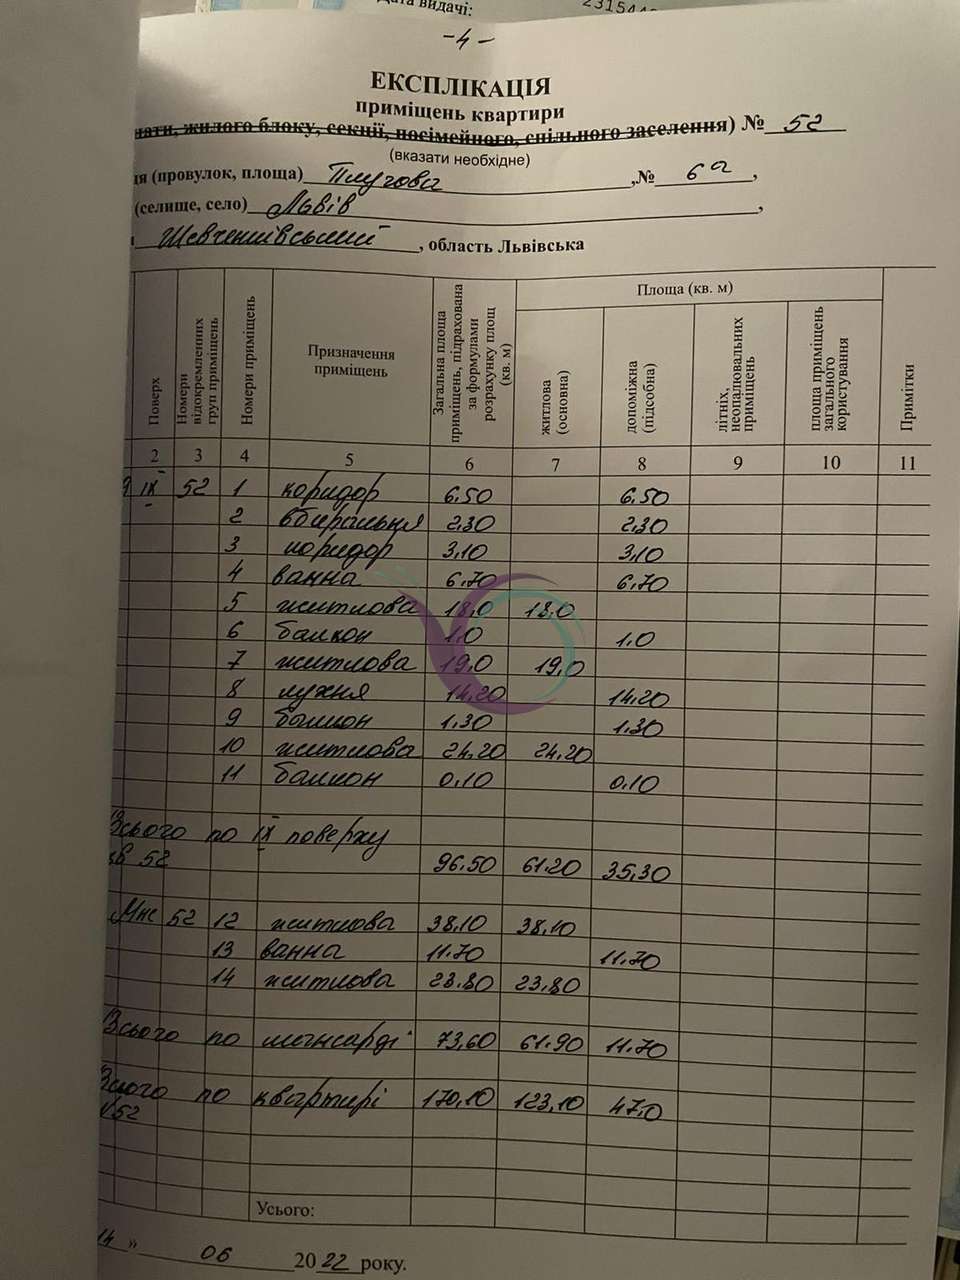 дата видачі:
-4-
ЕКСПЛІКАЦІЯ
приміщень квартири
нати, жилого блоку, секції, посімейного, спільного заселення) № 52
(вказати необхідне)
ця (провулок, площа) Плугова ,№ 6а ,
(селище, село) Львів ,
Шевченківський , область Львівська
Поверх
Номери відокремленних груп приміщень
Номери приміщень
Призначення приміщень
Загальна площа приміщень, підрахована за формулами розрахунку площ (кв. м)
Площа (кв. м)
житлова (основна)
допоміжна (підсобна)
літніх, неопалювальних приміщень
площа приміщень загального користування
Примітки
2 3 4 5 6 7 8 9 10 11
IX 52 1 коридор 6.50 6.50
2 вбиральня 2.30 2.30
3 коридор 3,10 3,10
4 ванна 6.70 6.70
5 житлова 18,0 18,0
6 балкон 1.0 1.0
7 житлова 19,0 19,0
8 кухня 14.20 14.20
9 балкон 1.30 1.30
10 житлова 24.20 24.20
11 балкон 0.10 0.10
Всього по IX поверху
кв 52 96.50 61.20 35,30
Мнс 52 12 житлова 38,10 38,10
13 ванна 11.70 11.70
14 житлова 23.80 23,80
Всього по мансарді 73,60 61.90 11.70
Всього по квартирі 170,10 123,10 47,0
52
Усього:
14 » 06 2022 року.